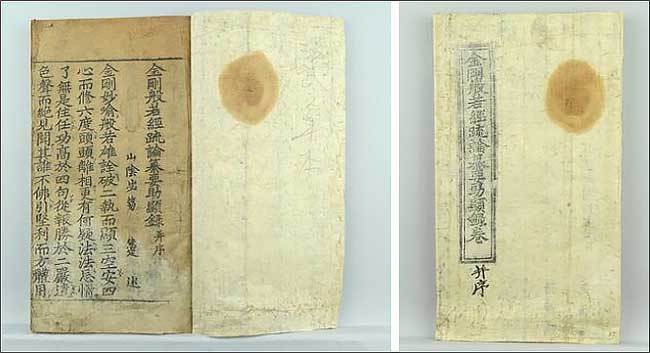 金剛般若經疏論纂要助顯錄 并序
山陰 述
金剛妙慧般若雄詮破二執而顯三空安四
心而修六度頭頭離相更有何疑法法忘情
了無是住任功高於四句從報勝於二嚴
色聲而絶見聞其誰不佛引堅利而方體用
金剛般若經疏論纂要助顯錄卷
并序